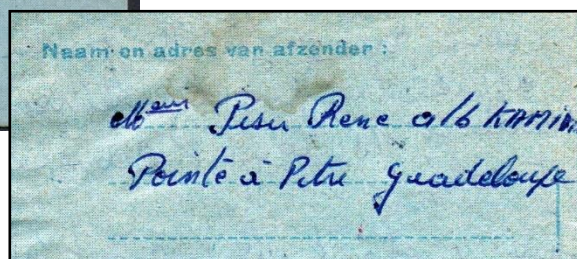 Naam en adres van afzender :
Meur Rene a/b
Pointe à Pitre Guadeloupe